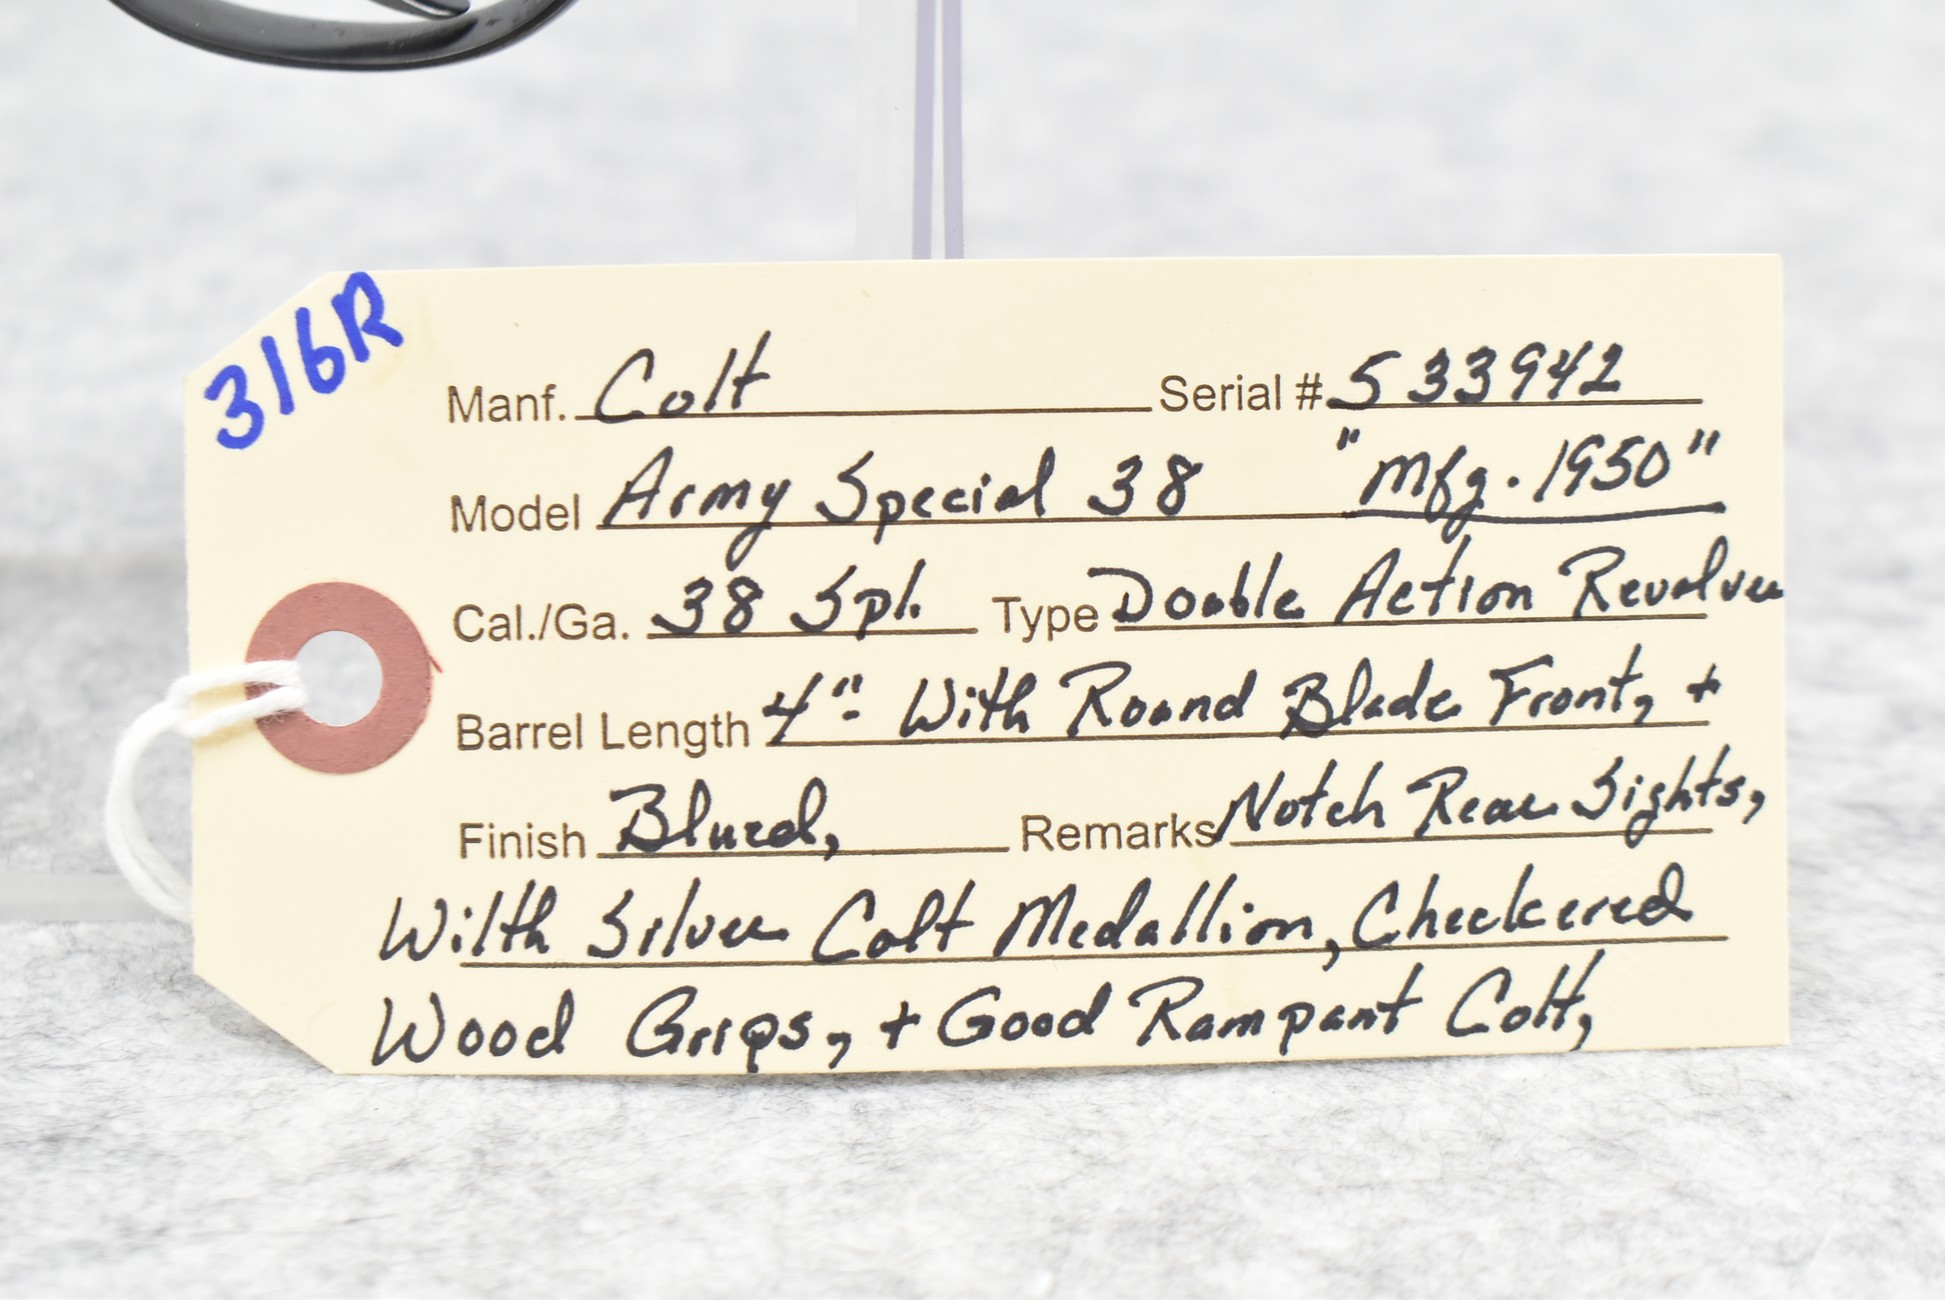 316R
Manf. Colt Serial # 533942
Model Army Special 38 "Mfg. 1950"
Cal./Ga. 38 Spl. Type Double Action Revolver
Barrel Length 4" With Round Blade Front, +
Finish Blued, Remarks Notch Rear Sights,
Wilth Silver Colt Medallion, Checkered
Wood Grips, + Good Rampant Colt,